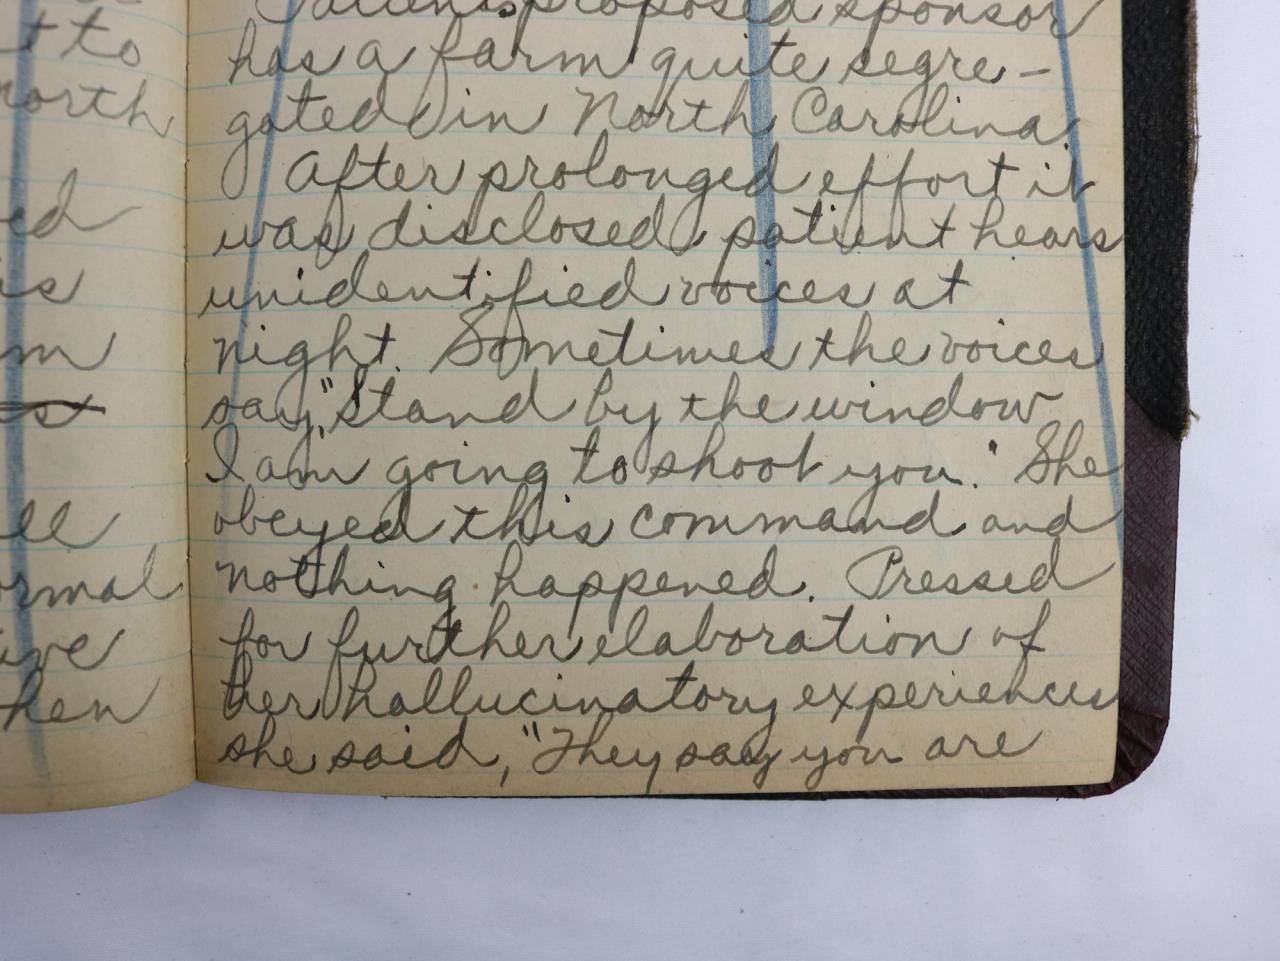 t to
north
ed
is
m
st
ell
ormal
ive
hen
Patient's proposed sponsor
has a farm quite segre-
gated in North Carolina.
After prolonged effort it
was disclosed patient hears
unidentified voices at
night. Sometimes the voices
say, "Stand by the window
I am going to shoot you." She
obeyed this command and
nothing happened. Pressed
for further elaboration of
her hallucinatory experiences
she said, "They say you are